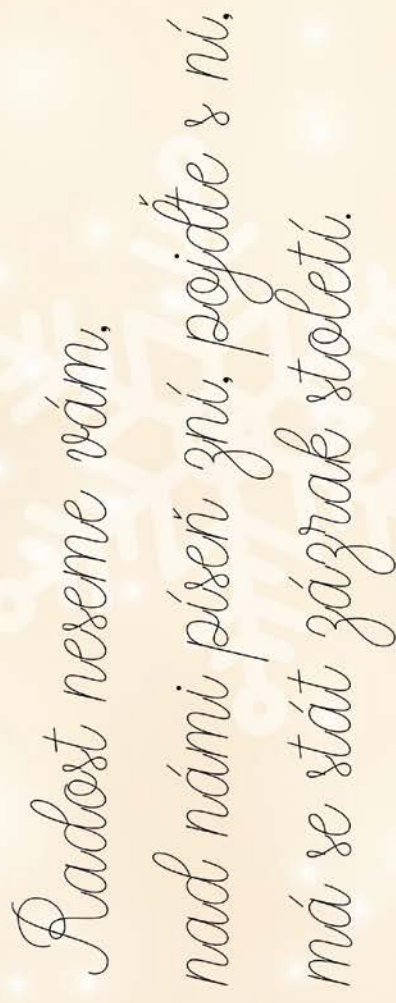 Radost neseme vám,
nad námi píseň zní, pojďte s ní,
má se stát zázrak století.